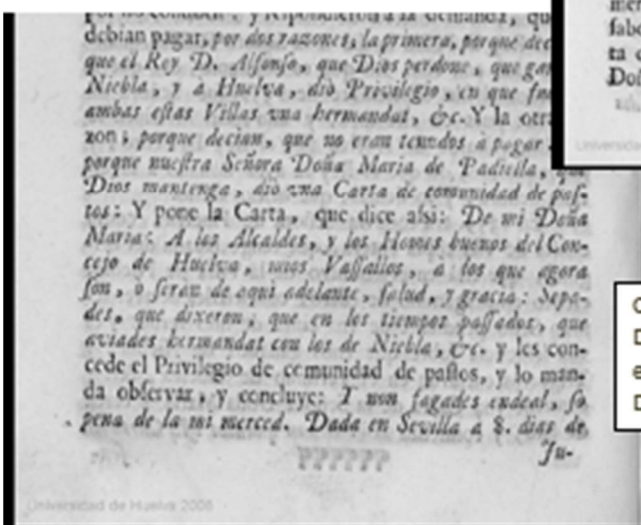 por no y respondieron a la demanda, qu
debian pagar, por dos razones, la primera, porque dec
que el Rey D. Alfonso, que Dios perdone, que gan
Niebla, y a Huelva, diò Privilegio, en que fue
ambas estas Villas una hermandat, &c. Y la otr
zon; porque decian, que no eran tenudos à pagar
porque nuestra Señora Doña Maria de Padiella, que
Dios mantenga, diò una Carta de comunidad de pas-
tos: Y pone la Carta, que dice assi: De mi Doña
Maria: A los Alcaldes, y los Homes buenos del Con-
cejo de Huelva, mios Vassallos, a los que agora
son, ò seran de aqui adelante, salud, y gracia: Sepa-
des, que dixeron, que en los tiempos passados, que
aviades hermandat con los de Niebla, &c. y les con-
cede el Privilegio de comunidad de pastos, y lo man-
da observar, y concluye: I non fagades endeal, so
pena de la mi merced. Dada en Sevilla à 8. dias de
Ju-
Universidad de Huelva 2006
mer
fabo
ta c
Dol
Universidad